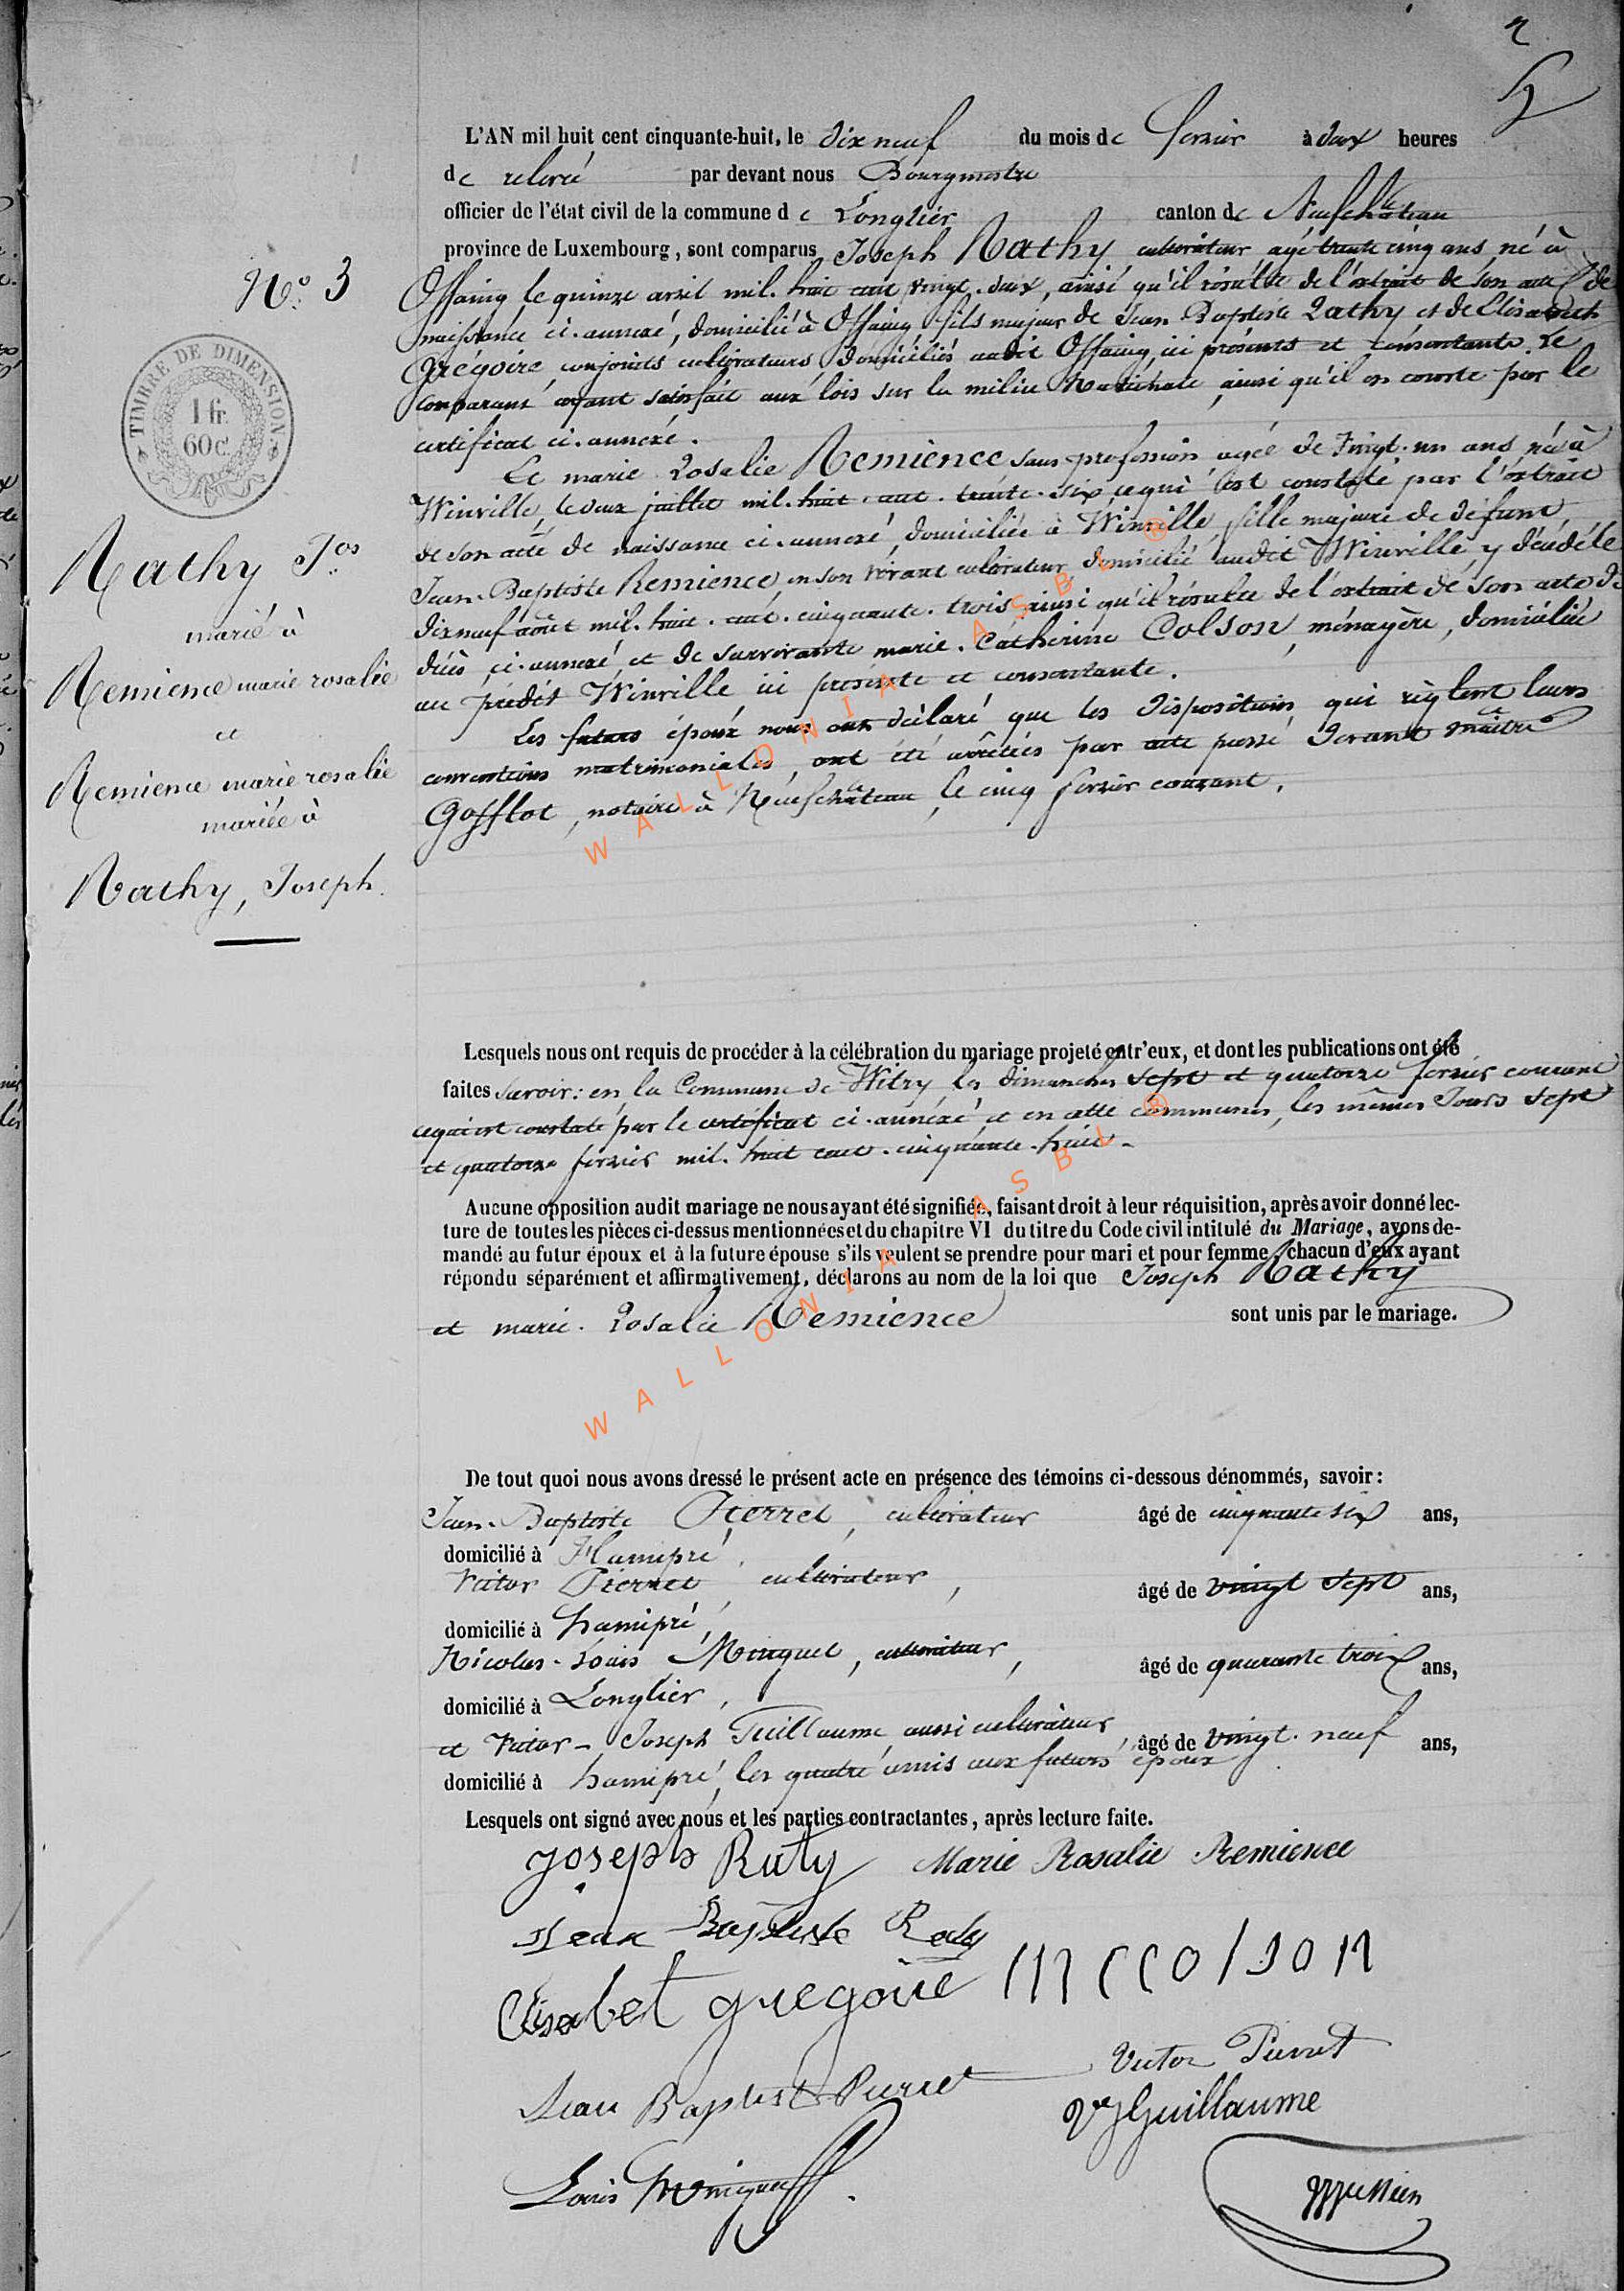 2
L'AN mil huit cent cinquante-huit, le dix neuf du mois de fevrier à deux heures
de relevé par devant nous Bourgmestre
officier de l'état civil de la commune de Longlier canton de Neufchâteau
province de Luxembourg, sont comparus Joseph Rathy cultivateur agé trente cinq ans, né à
Offaing le quinze avril mil. huit cent vingt. deux, ainsi qu'il résulte de l'extrait de son acte de
naissance ci. annexé, domicilié à Offaing fils majeur de Jean Baptiste Rathy et de Elisabeth
Grégoire, conjoints cultivateurs domiciliés audit Offaing, ici présents et consentants. Le
comparant ayant satisfait aux lois sur la milice Nationale, ainsi qu'il en conste par le
certificat ci. annexé.
Et marie Rosalie Remience sans profession agée de vingt. un ans, née à
Winville, le deux juillet mil. huit. cent. trente. six, ce qui est constaté par l'extrait
de son acte de naissance ci. annexé, domiciliée à Winville, fille majeure de défunt
Jean. Baptiste Remience, en son vivant cultivateur domicilié audit Winville, y décédé le
dixneuf août mil. huit. cent. cinquante. trois ainsi qu'il résulte de l'extrait de son acte de
décès, ci. annexé et de survivante marie. Catherine Colson, ménagère, domiciliée
au prédit Winville ici présente et consentante.
Les futurs époux nous ont déclaré que les dispositions qui règlent leurs
conventions matrimoniales, ont été arrêtées par acte passé devant maître
Gofflot, notaire à Neufchâteau, le cinq fevrier courant.
No. 3
TIMBRE DE DIMENSION
1 fr.
60 c.
Rathy Jos
marié à
Remience marie rosalie
et
Remience marie rosalie
mariée à
Rathy, Joseph.
Lesquels nous ont requis de procéder à la célébration du mariage projeté entr'eux, et dont les publications ont été
faites savoir: en la Commune de Witry les dimanches sept et quatorze fevrier courant
ce qui est constaté par le certificat ci. annexé et en cette commune, les mêmes Jours sept
et quatorze fevrier mil. huit cent. cinquante. huit.
Aucune opposition audit mariage ne nous ayant été signifiée, faisant droit à leur réquisition, après avoir donné lec-
ture de toutes les pièces ci-dessus mentionnées et du chapitre VI du titre du Code civil intitulé du Mariage, avons de-
mandé au futur époux et à la future épouse s'ils veulent se prendre pour mari et pour femme, chacun d'eux ayant
répondu séparément et affirmativement, déclarons au nom de la loi que Joseph Rathy
et marie. Rosalie Remience sont unis par le mariage.
WALLONIA ASBL ®
WALLONIA ASBL ®
De tout quoi nous avons dressé le présent acte en présence des témoins ci-dessous dénommés, savoir:
Jean. Baptiste Pierret, cultivateur âgé de cinquante six ans,
domicilié à Hamipré,
Victor Pierret, cultivateur, âgé de vingt sept ans,
domicilié à hamipré,
Nicolas. Louis Minguet, cultivateur, âgé de quarante trois ans,
domicilié à Longlier,
et Victor - Joseph Guillaume aussi cultivateur âgé de vingt. neuf ans,
domicilié à hamipré, les quatre amis aux futurs époux
Lesquels ont signé avec nous et les parties contractantes, après lecture faite.
joseph Raty Marie Rosalie Remience
Jean Baptiste Raty
Elisabet gregoire m c colson
Jean Baptist Pierret Victor Pierret
Vr J Guillaume
Louis Minguet